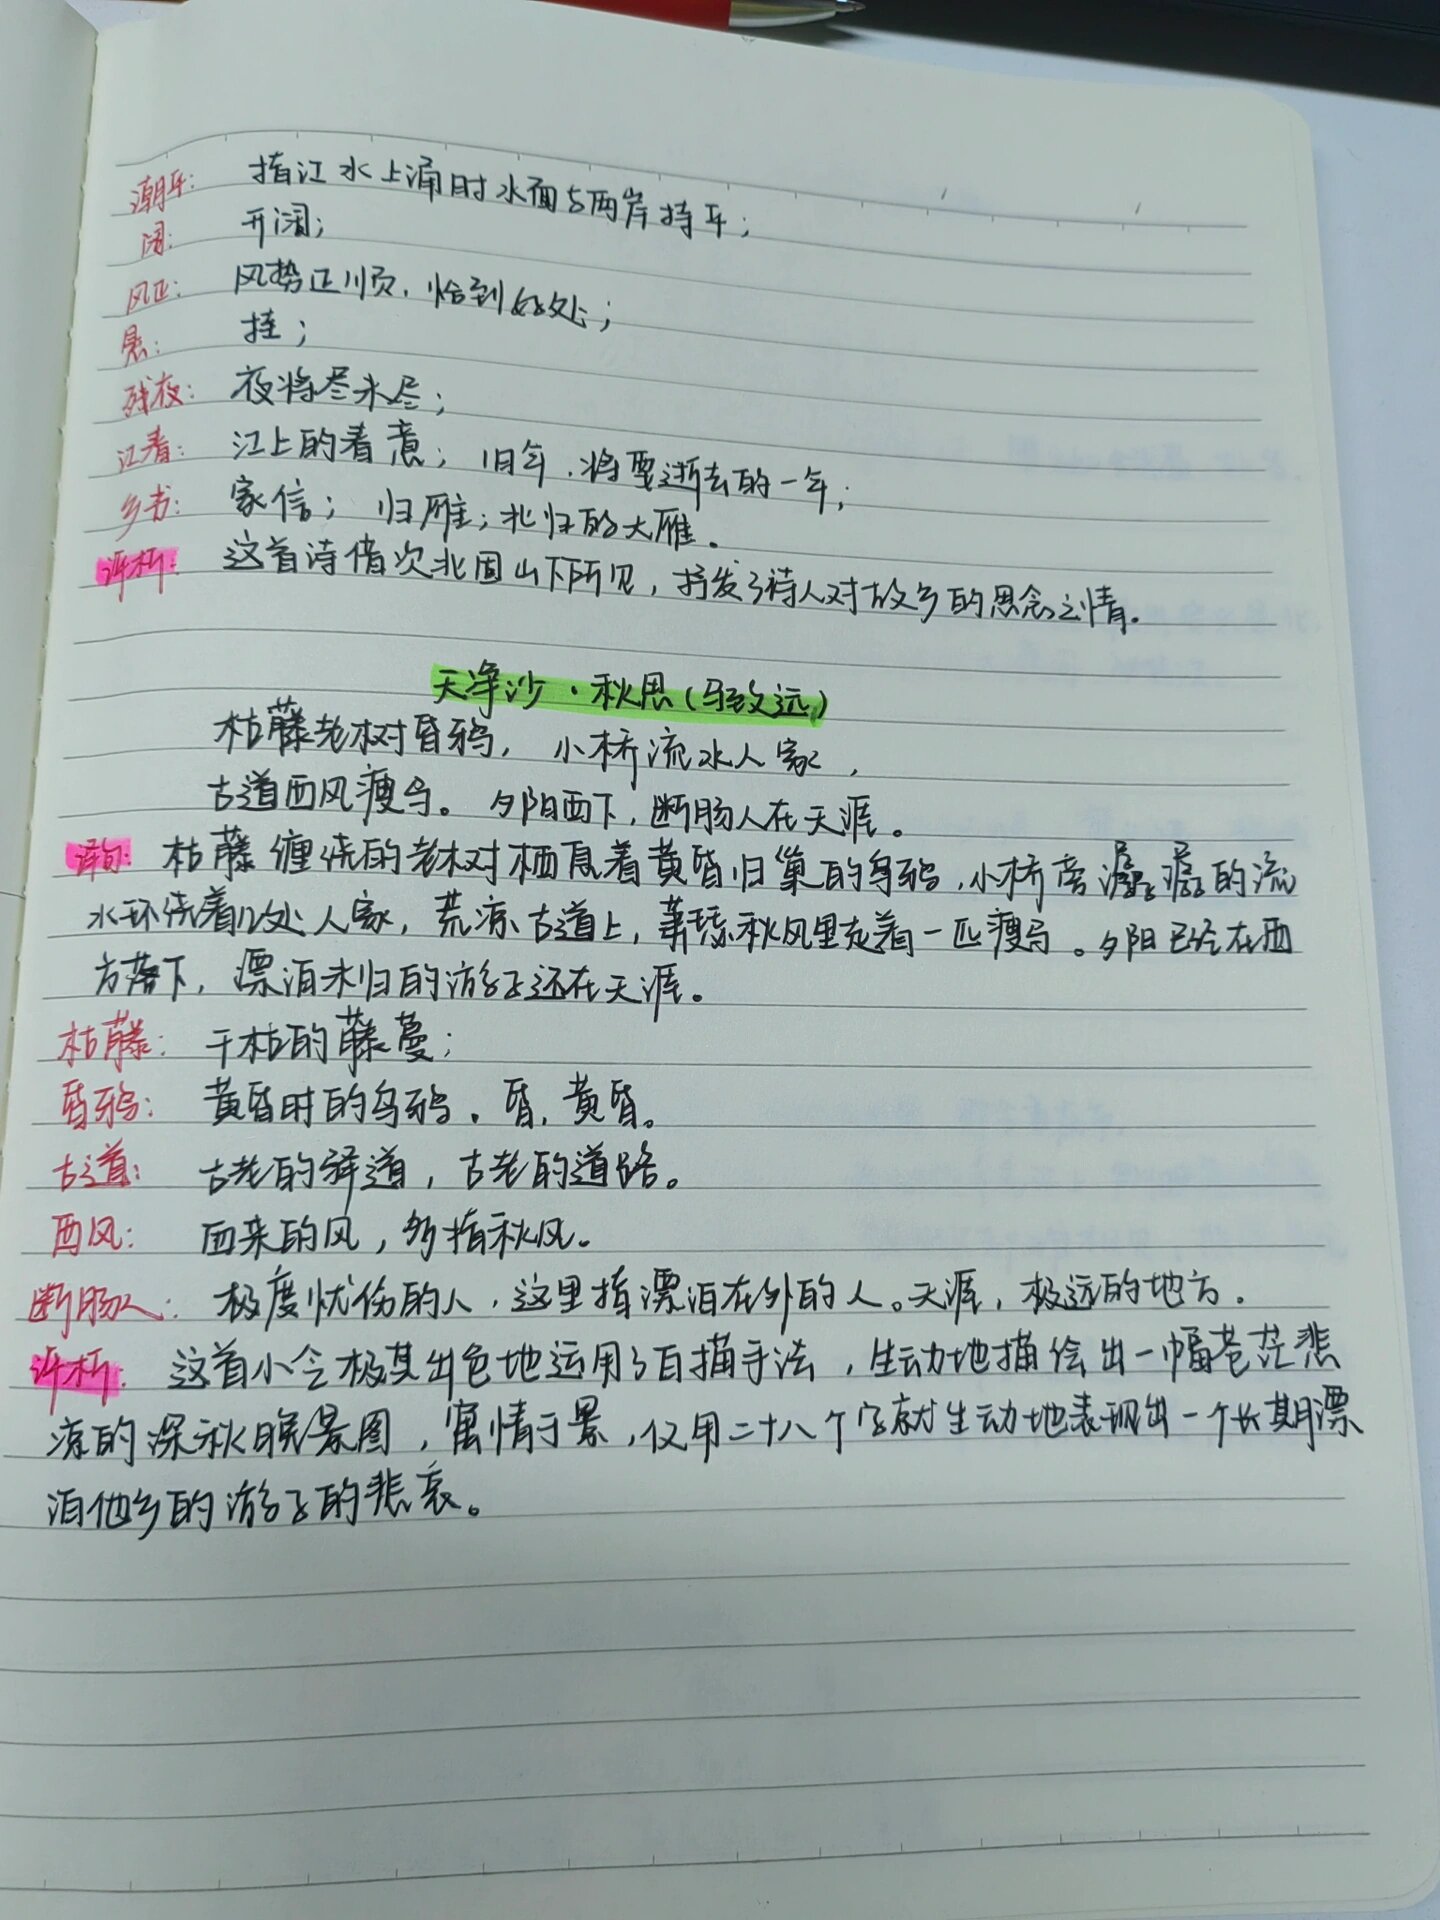 潮平: 指江水上涌时水面与两岸持平；
阔: 开阔；
风正: 风势正顺，恰到好处；
悬: 挂；
残夜: 夜将尽未尽；
江春: 江上的春意；旧年，将要逝去的一年；
乡书: 家信；归雁；北归的大雁。
评析: 这首诗借次北固山下所见，抒发了诗人对故乡的思念之情。
天净沙·秋思(马致远)
枯藤老树昏鸦，小桥流水人家，
古道西风瘦马。夕阳西下，断肠人在天涯。
译句: 枯藤缠绕的老树栖息着黄昏归巢的乌鸦，小桥旁潺潺的流
水环绕着几处人家，荒凉古道上，萧瑟秋风里走着一匹瘦马。夕阳已经在西
方落下，漂泊未归的游子还在天涯。
枯藤: 干枯的藤蔓；
昏鸦: 黄昏时的乌鸦。昏，黄昏。
古道: 古老的驿道，古老的道路。
西风: 西来的风，多指秋风。
断肠人: 极度忧伤的人，这里指漂泊在外的人。天涯，极远的地方.
评析: 这首小令极其出色地运用了白描手法，生动地描绘出一幅苍茫悲
凉的深秋晚景图，寓情于景，仅用二十八个字就生动地表现出一个长期漂
泊他乡的游子的悲哀。